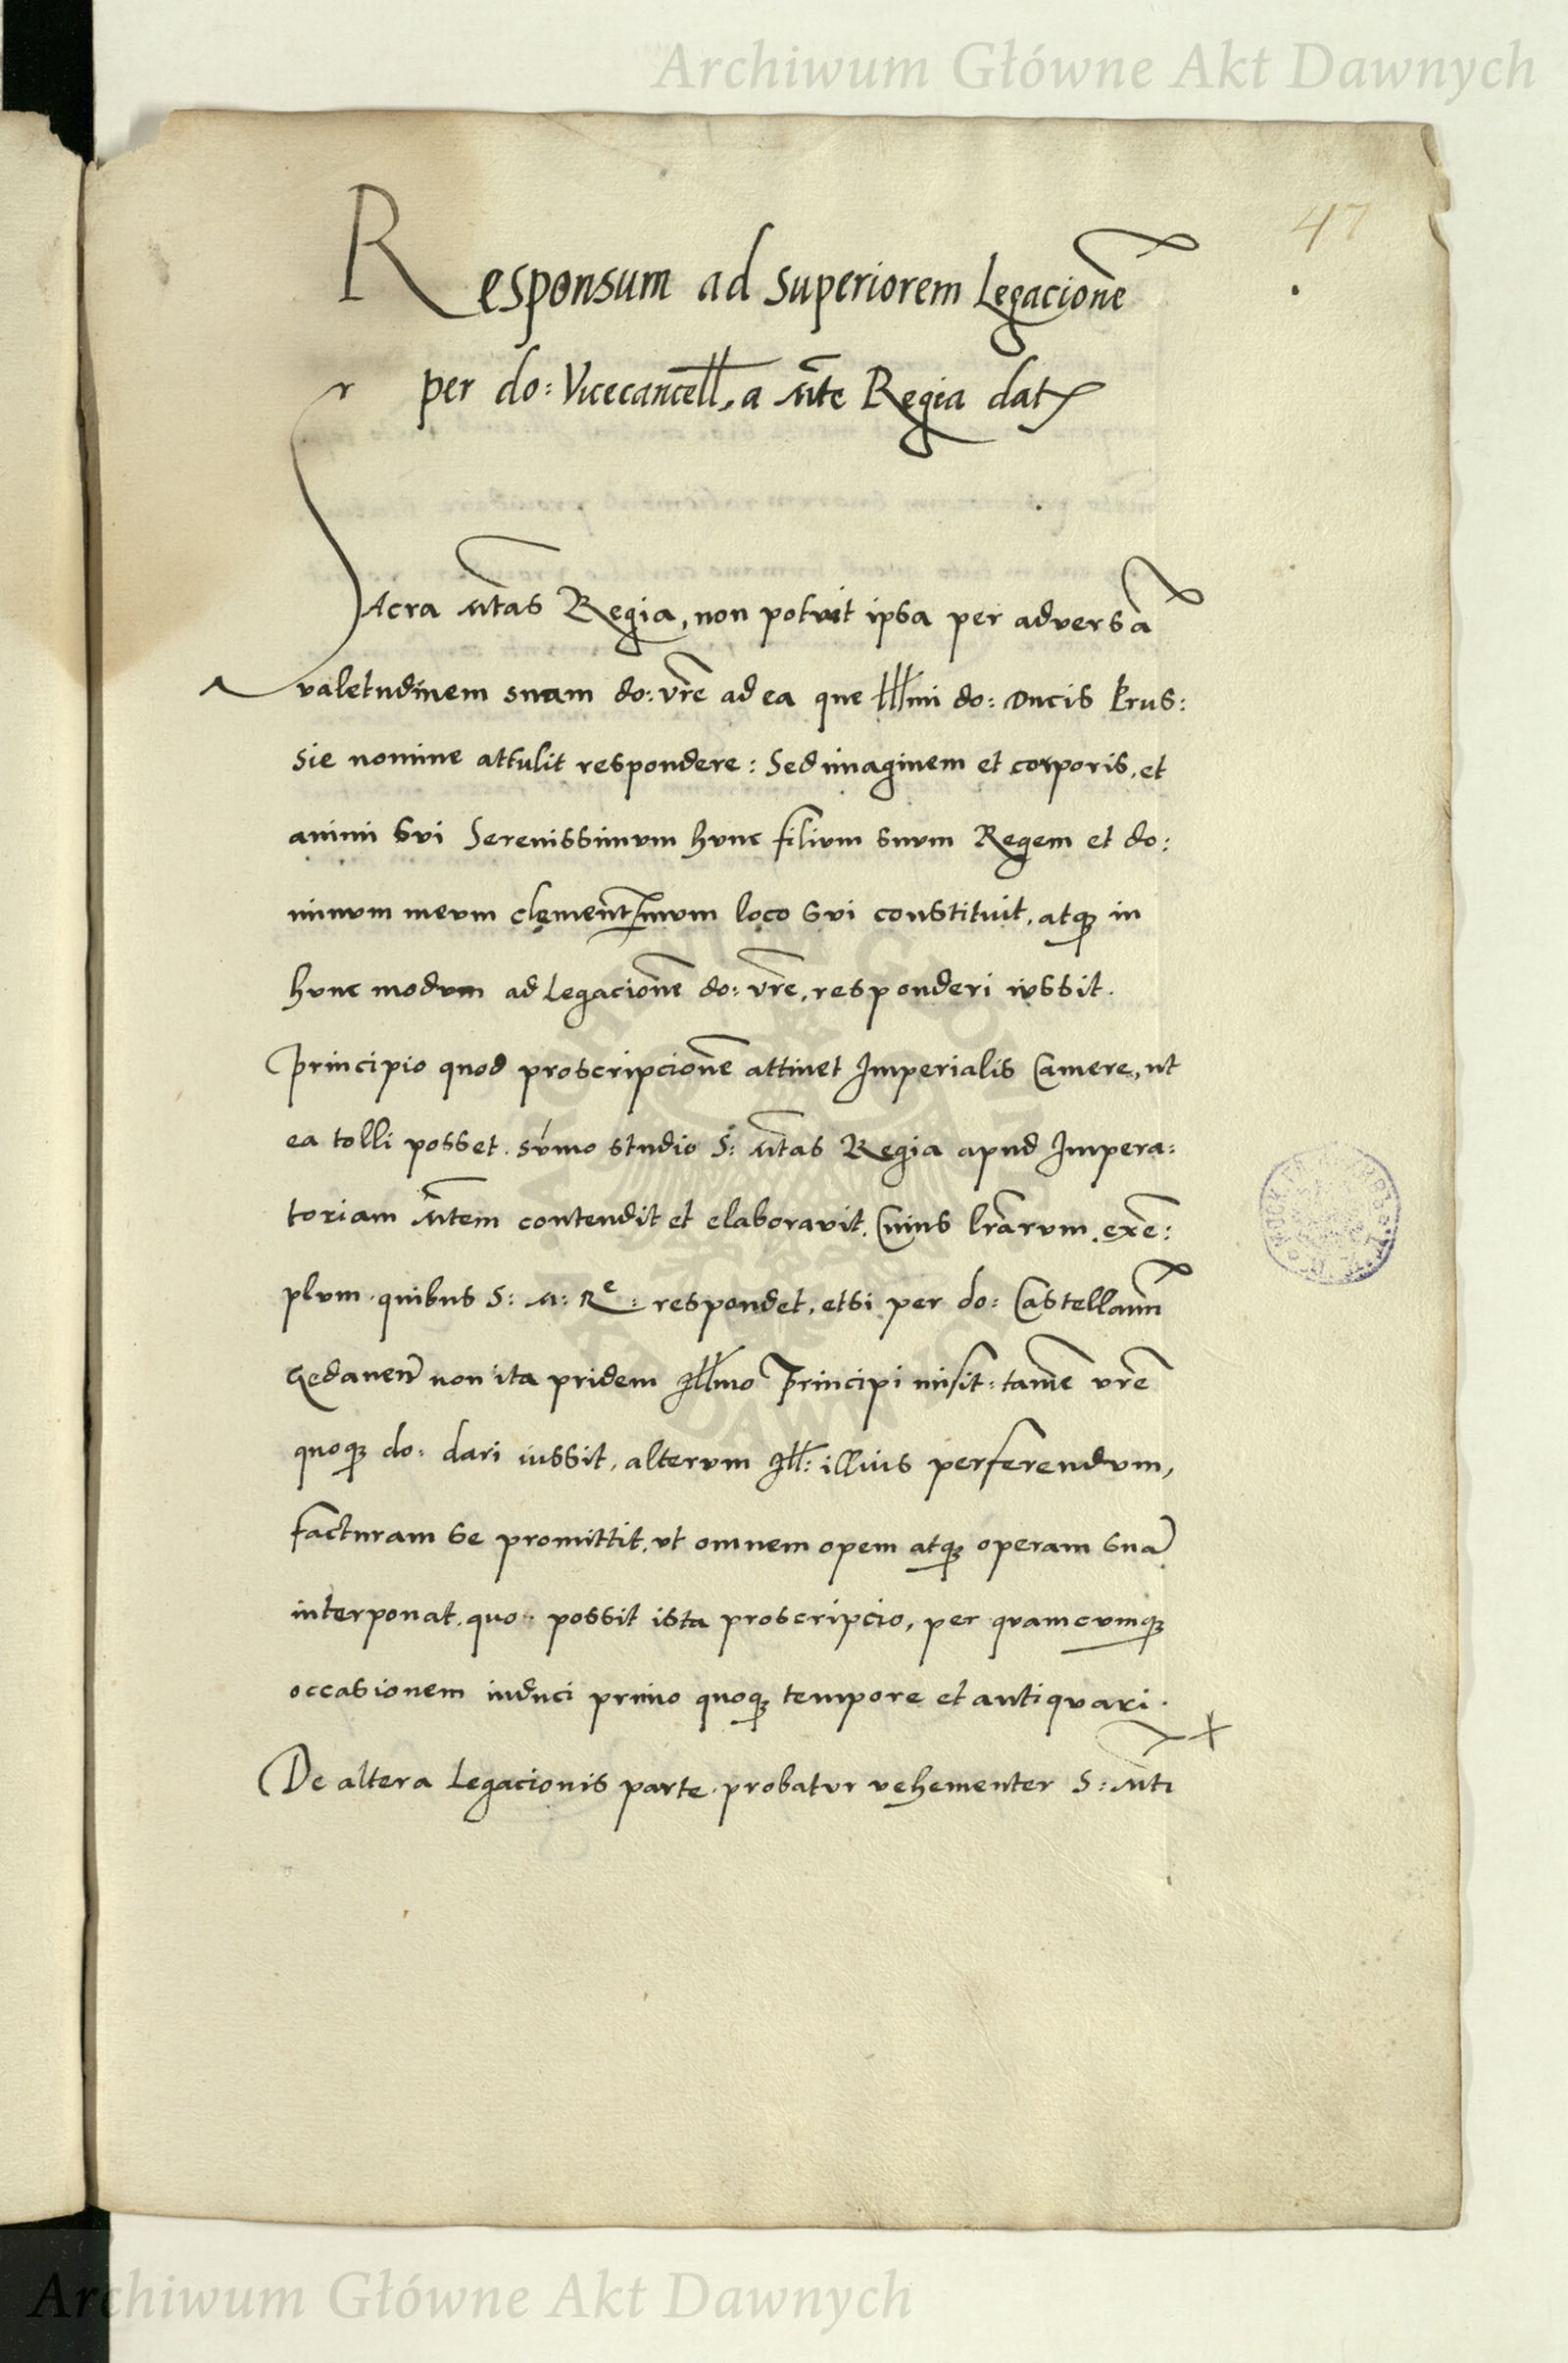 Archiwum Główne Akt Dawnych
47
Responsum ad superiorem Legacionē
per do: Vicecancell, a Mte Regia dat
Sacra Mtas Regia, non potuit ipsa per adversā
valetudinem suam do: vr̄e ad ea que Illmi do: Ducis Prus:
sie nomine attulit respondere: Sed imaginem et corporis, et
animi svi Serenissimvm hvnc filivm suvm Regem et do:
minvm mevm clement̄imvm loco svi constituit, atq3 in
hvnc modvm ad Legacionē do: vr̄e, responderi ivssit.
Principio quod proscripcionē attinet Imperialis Camere, ut
ea tolli posset. sv̄mo studio S: Mtas Regia apud Impera:
toriam Mtem contendit et elaboravit. Cuius lr̄arvm exē:
plvm quibus S: M: Re: respondet, etsi per do: Castellanū
Gedanen̄ non ita pridem Illmo Principi misit: tamē vr̄e
quoq3 do: dari iussit, altervm Ill: illius perferendvm,
facturam se promittit, vt omnem opem atq3 operam suā
interponat. quo possit ista proscripcio, per qvamcvmq3
occasionem induci primo quoq3 tempore et antiqvari.
De altera Legacionis parte. probatvr vehementer S: Mti
Archiwum Główne Akt Dawnych